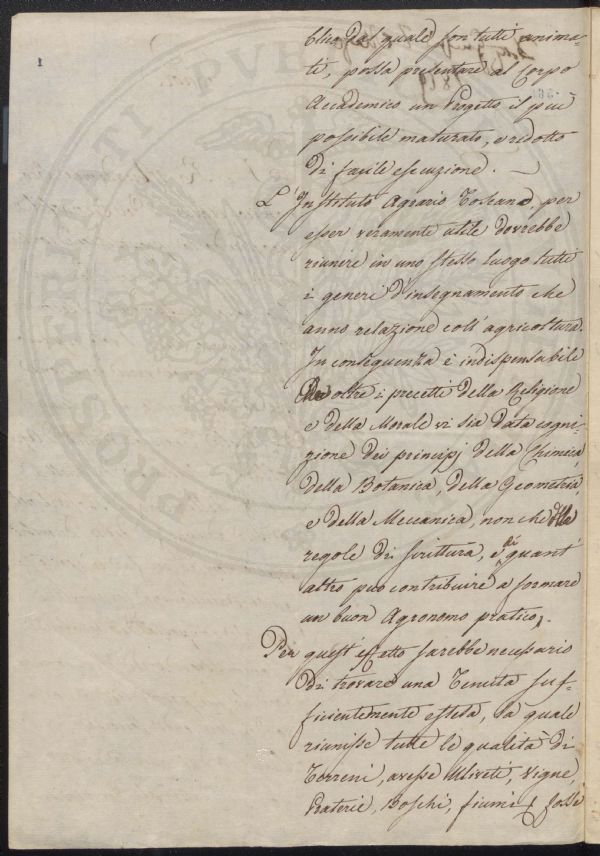 1
blico dal quale son tutti anima-
ti, possa presentare al Corpo
Accademico un Progetto il più
possibile maturato, e ridotto
di facile esecuzione. —
L'Instituto Agrario Toscano, per
esser veramente utile dovrebbe
riunire in uno stesso luogo tutti
i generi d'insegnamento che
anno relazione coll'agricoltura.
In conseguenza è indispensabile
che oltre i precetti della Religione
e della Morale vi sia data cogni-
zione dei principj della Chimica,
della Botanica, della Geometria,
e della Meccanica, non che delle
regole di scrittura, e di quant'
altro può contribuire a formare
un buon Agronomo pratico.
Per quest'effetto sarebbe necessario
di trovare una Tenuta suf-
ficientemente estesa, la quale
riunisse tutte le qualità di
Terreni, avesse Uliveti, Vigne,
Praterie, Boschi, fiumi, fossi
PROSPERITATI PUBLICAE